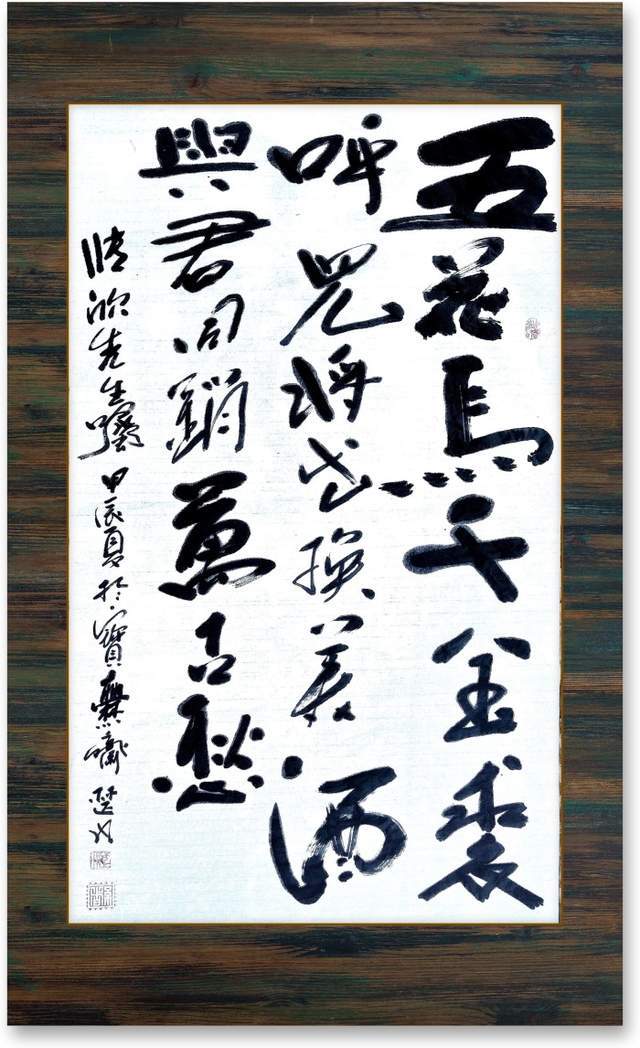 五花馬千金裘
呼兒將出換美酒
與君同銷萬古愁
欣先生囑甲辰夏於寶爨